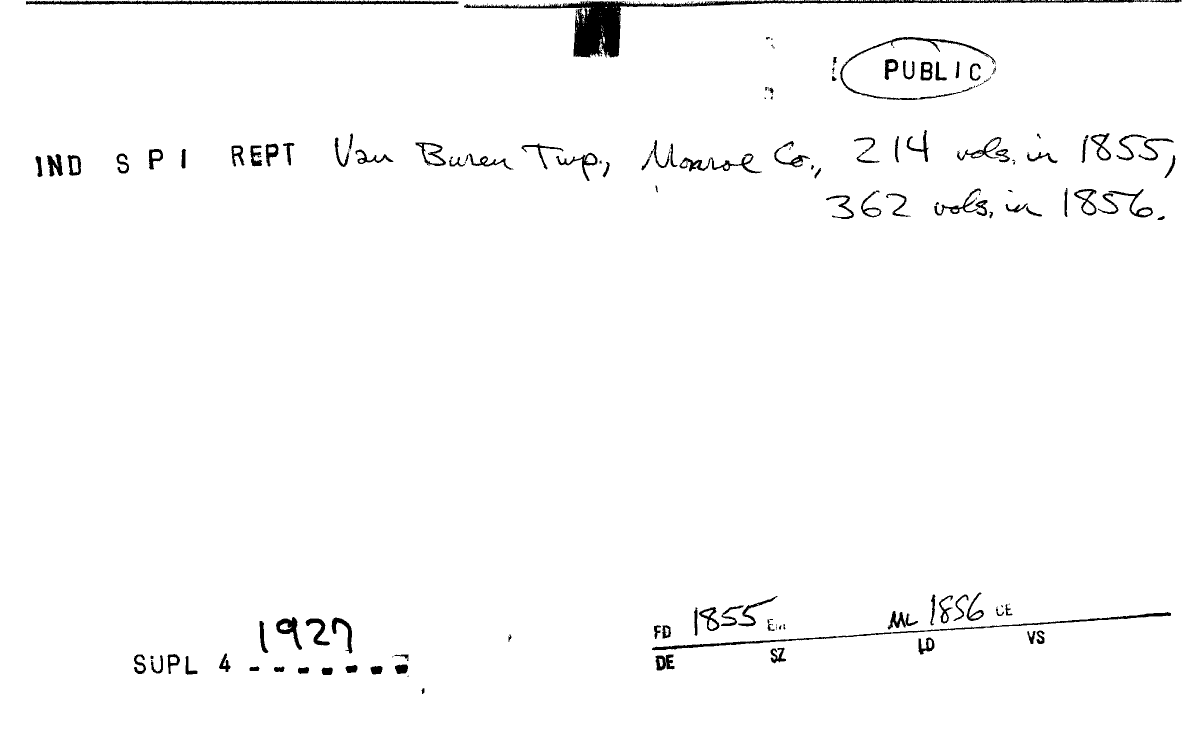 PUBLIC
IND S P I REPT Van Buren Twp., Monroe Co., 214 vols. in 1855,
362 vols. in 1856.
1927
SUPL 4 -------
FD 1855 ML 1856 CE
DE SZ LD VS